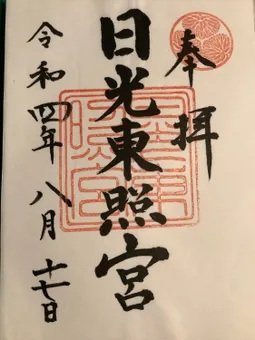 奉拝
日光東照宮
令和四年 八月 十七日